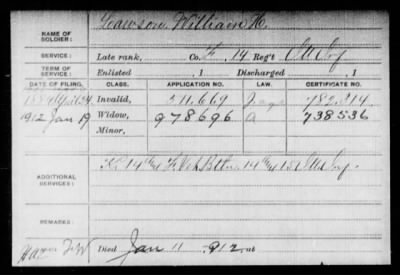 NAME OF SOLDIER: Lawson, William H.
SERVICE: Late rank, Co. F, 14 Reg't Ill Inf
TERM OF SERVICE: Enlisted , 1 Discharged , 1
DATE OF FILING. CLASS. APPLICATION NO. LAW. CERTIFICATE NO.
Invalid, 511.669 782.314
1912 Jan 19 Widow, 978696 a 738536
Minor,
ADDITIONAL SERVICES: K. 14 F Vet Battn. 14 Ill Inf
REMARKS:
Died Jan 11 1912, at